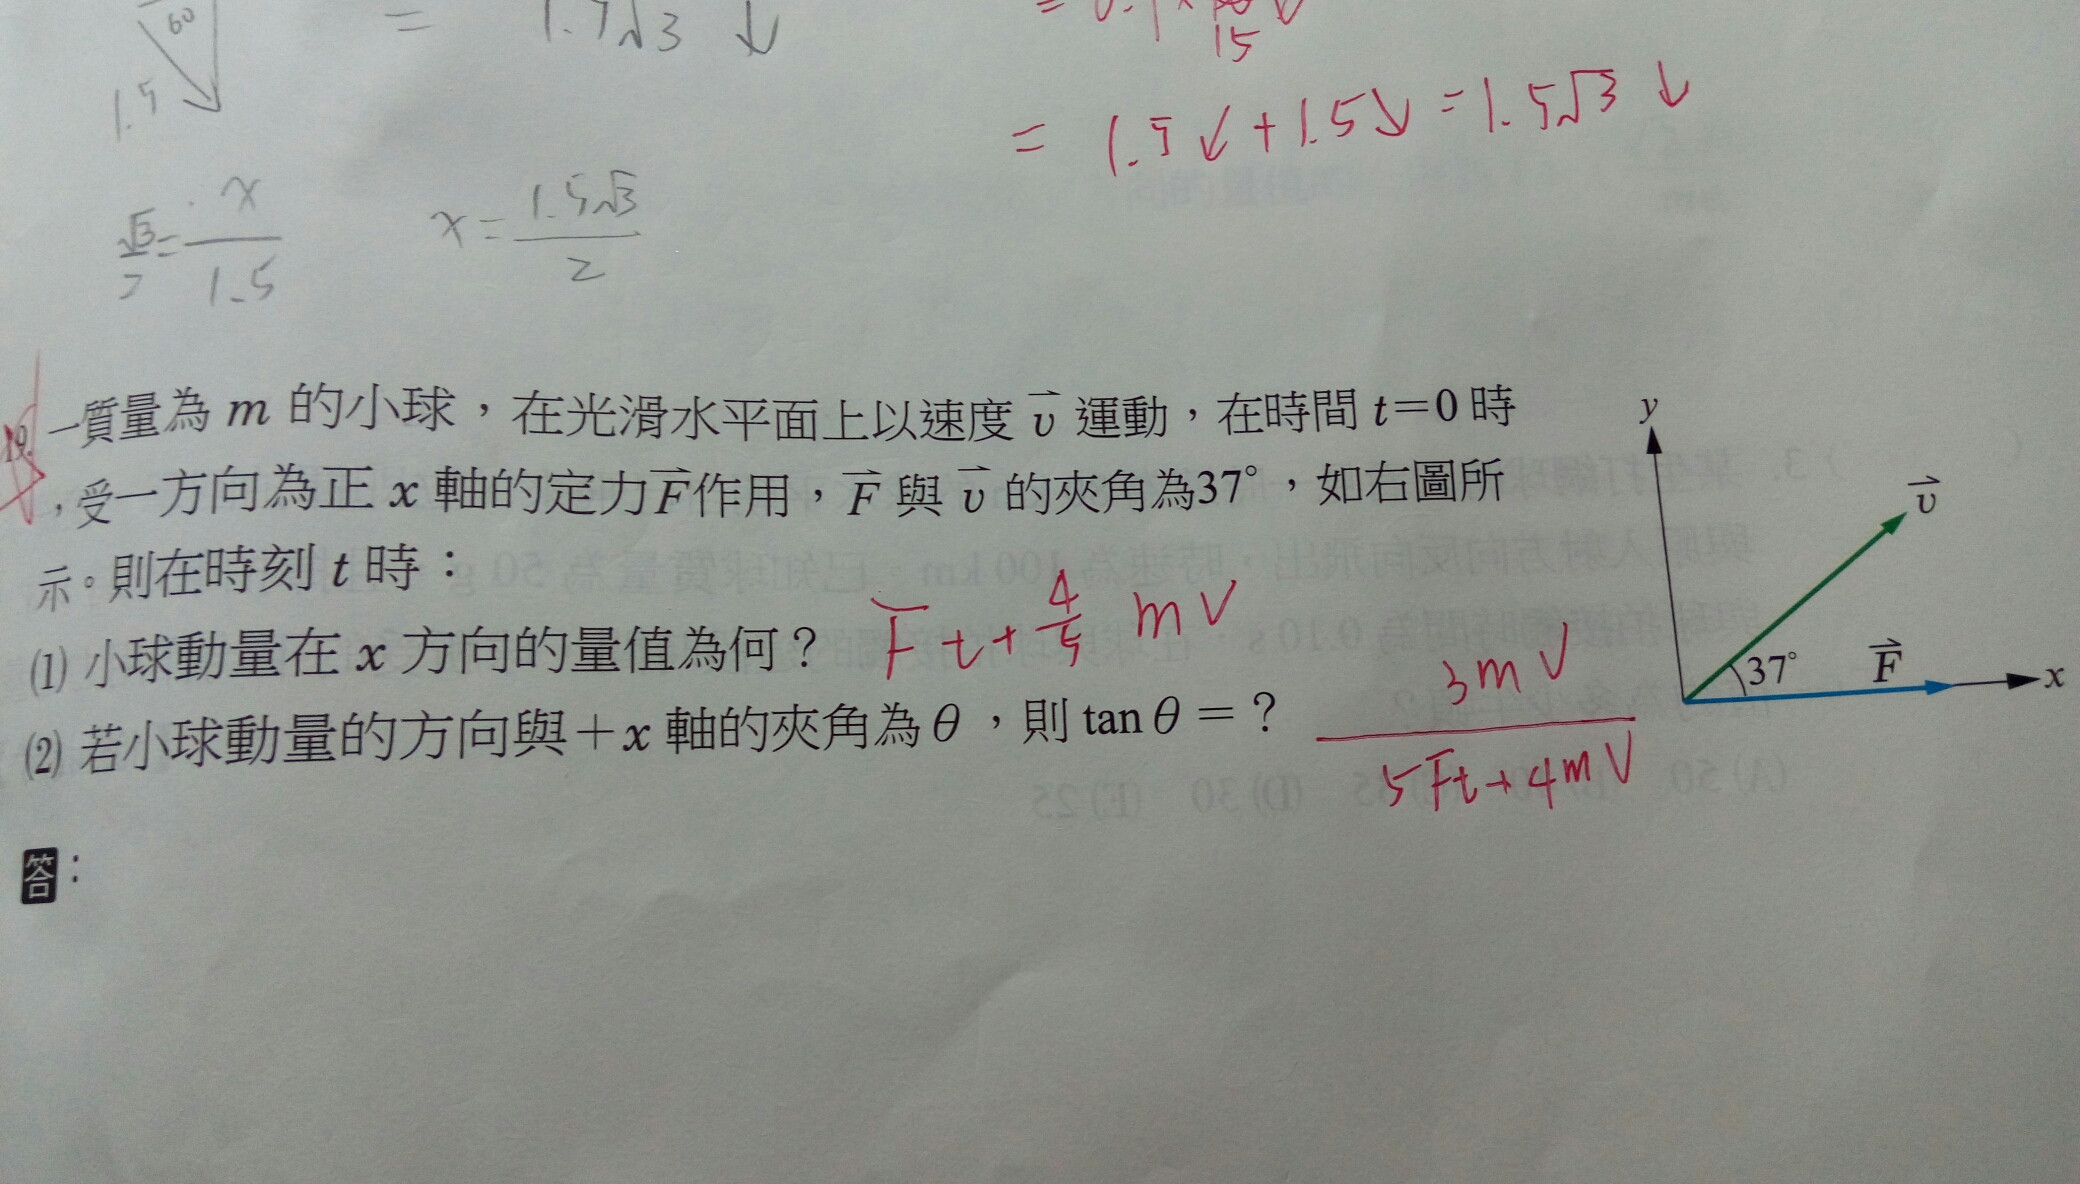 60
1.5
= 1.5√3 ↓
15
= 1.5↙+1.5↘=1.5√3 ↓
√3/2=x/1.5
x=1.5√3/2
19. 一質量為 m 的小球，在光滑水平面上以速度 v⃗ 運動，在時間 t=0 時
，受一方向為正 x 軸的定力F⃗作用，F⃗ 與 v⃗ 的夾角為37°，如右圖所
示。則在時刻 t 時：
(1) 小球動量在 x 方向的量值為何？ Ft+4/5 mV
(2) 若小球動量的方向與+x 軸的夾角為θ，則 tanθ=？ 3mV/5Ft+4mV
答：
y
v⃗
37°
F⃗
x